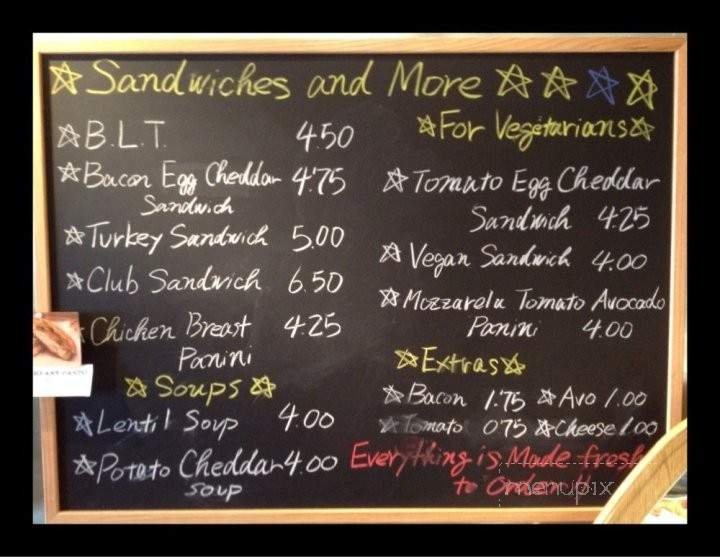 Sandwiches and More
B.L.T. 4.50
Bacon Egg Cheddar 4.75
Sandwich
Turkey Sandwich 5.00
Club Sandwich 6.50
Chicken Breast 4.25
Panini
Soups
Lentil Soup 4.00
Potato Cheddar 4.00
Soup
For Vegetarians
Tomato Egg Cheddar
Sandwich 4.25
Vegan Sandwich 4.00
Mozzarela Tomato Avocado
Panini 4.00
Extras
Bacon 1.75 Avo 1.00
Tomato 0.75 Cheese 1.00
Everything is Made fresh
to Order
menupix